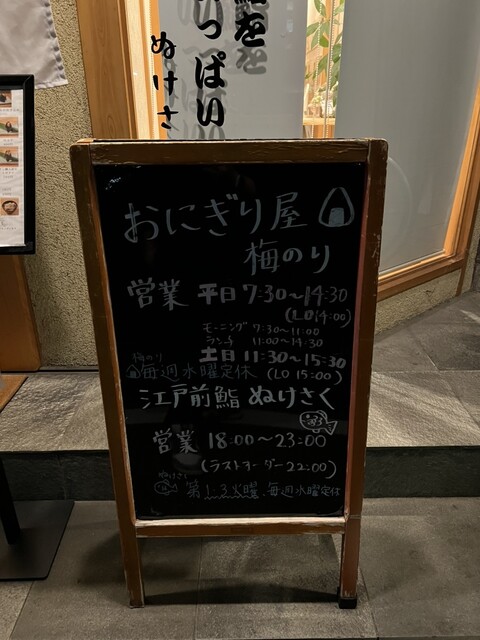 鮨を
いっぱい
ぬけさ
おにぎり屋
梅のり
営業 平日 7:30〜14:30
(LO 14:00)
モーニング 7:30〜11:00
ランチ 11:00〜14:30
土日 11:30〜15:30
(LO 15:00)
梅のり
毎週水曜定休
江戸前鮨 ぬけさく
営業 18:00〜23:00
(ラストオーダー22:00)
ぬけさく
第1.3火曜、毎週水曜定休